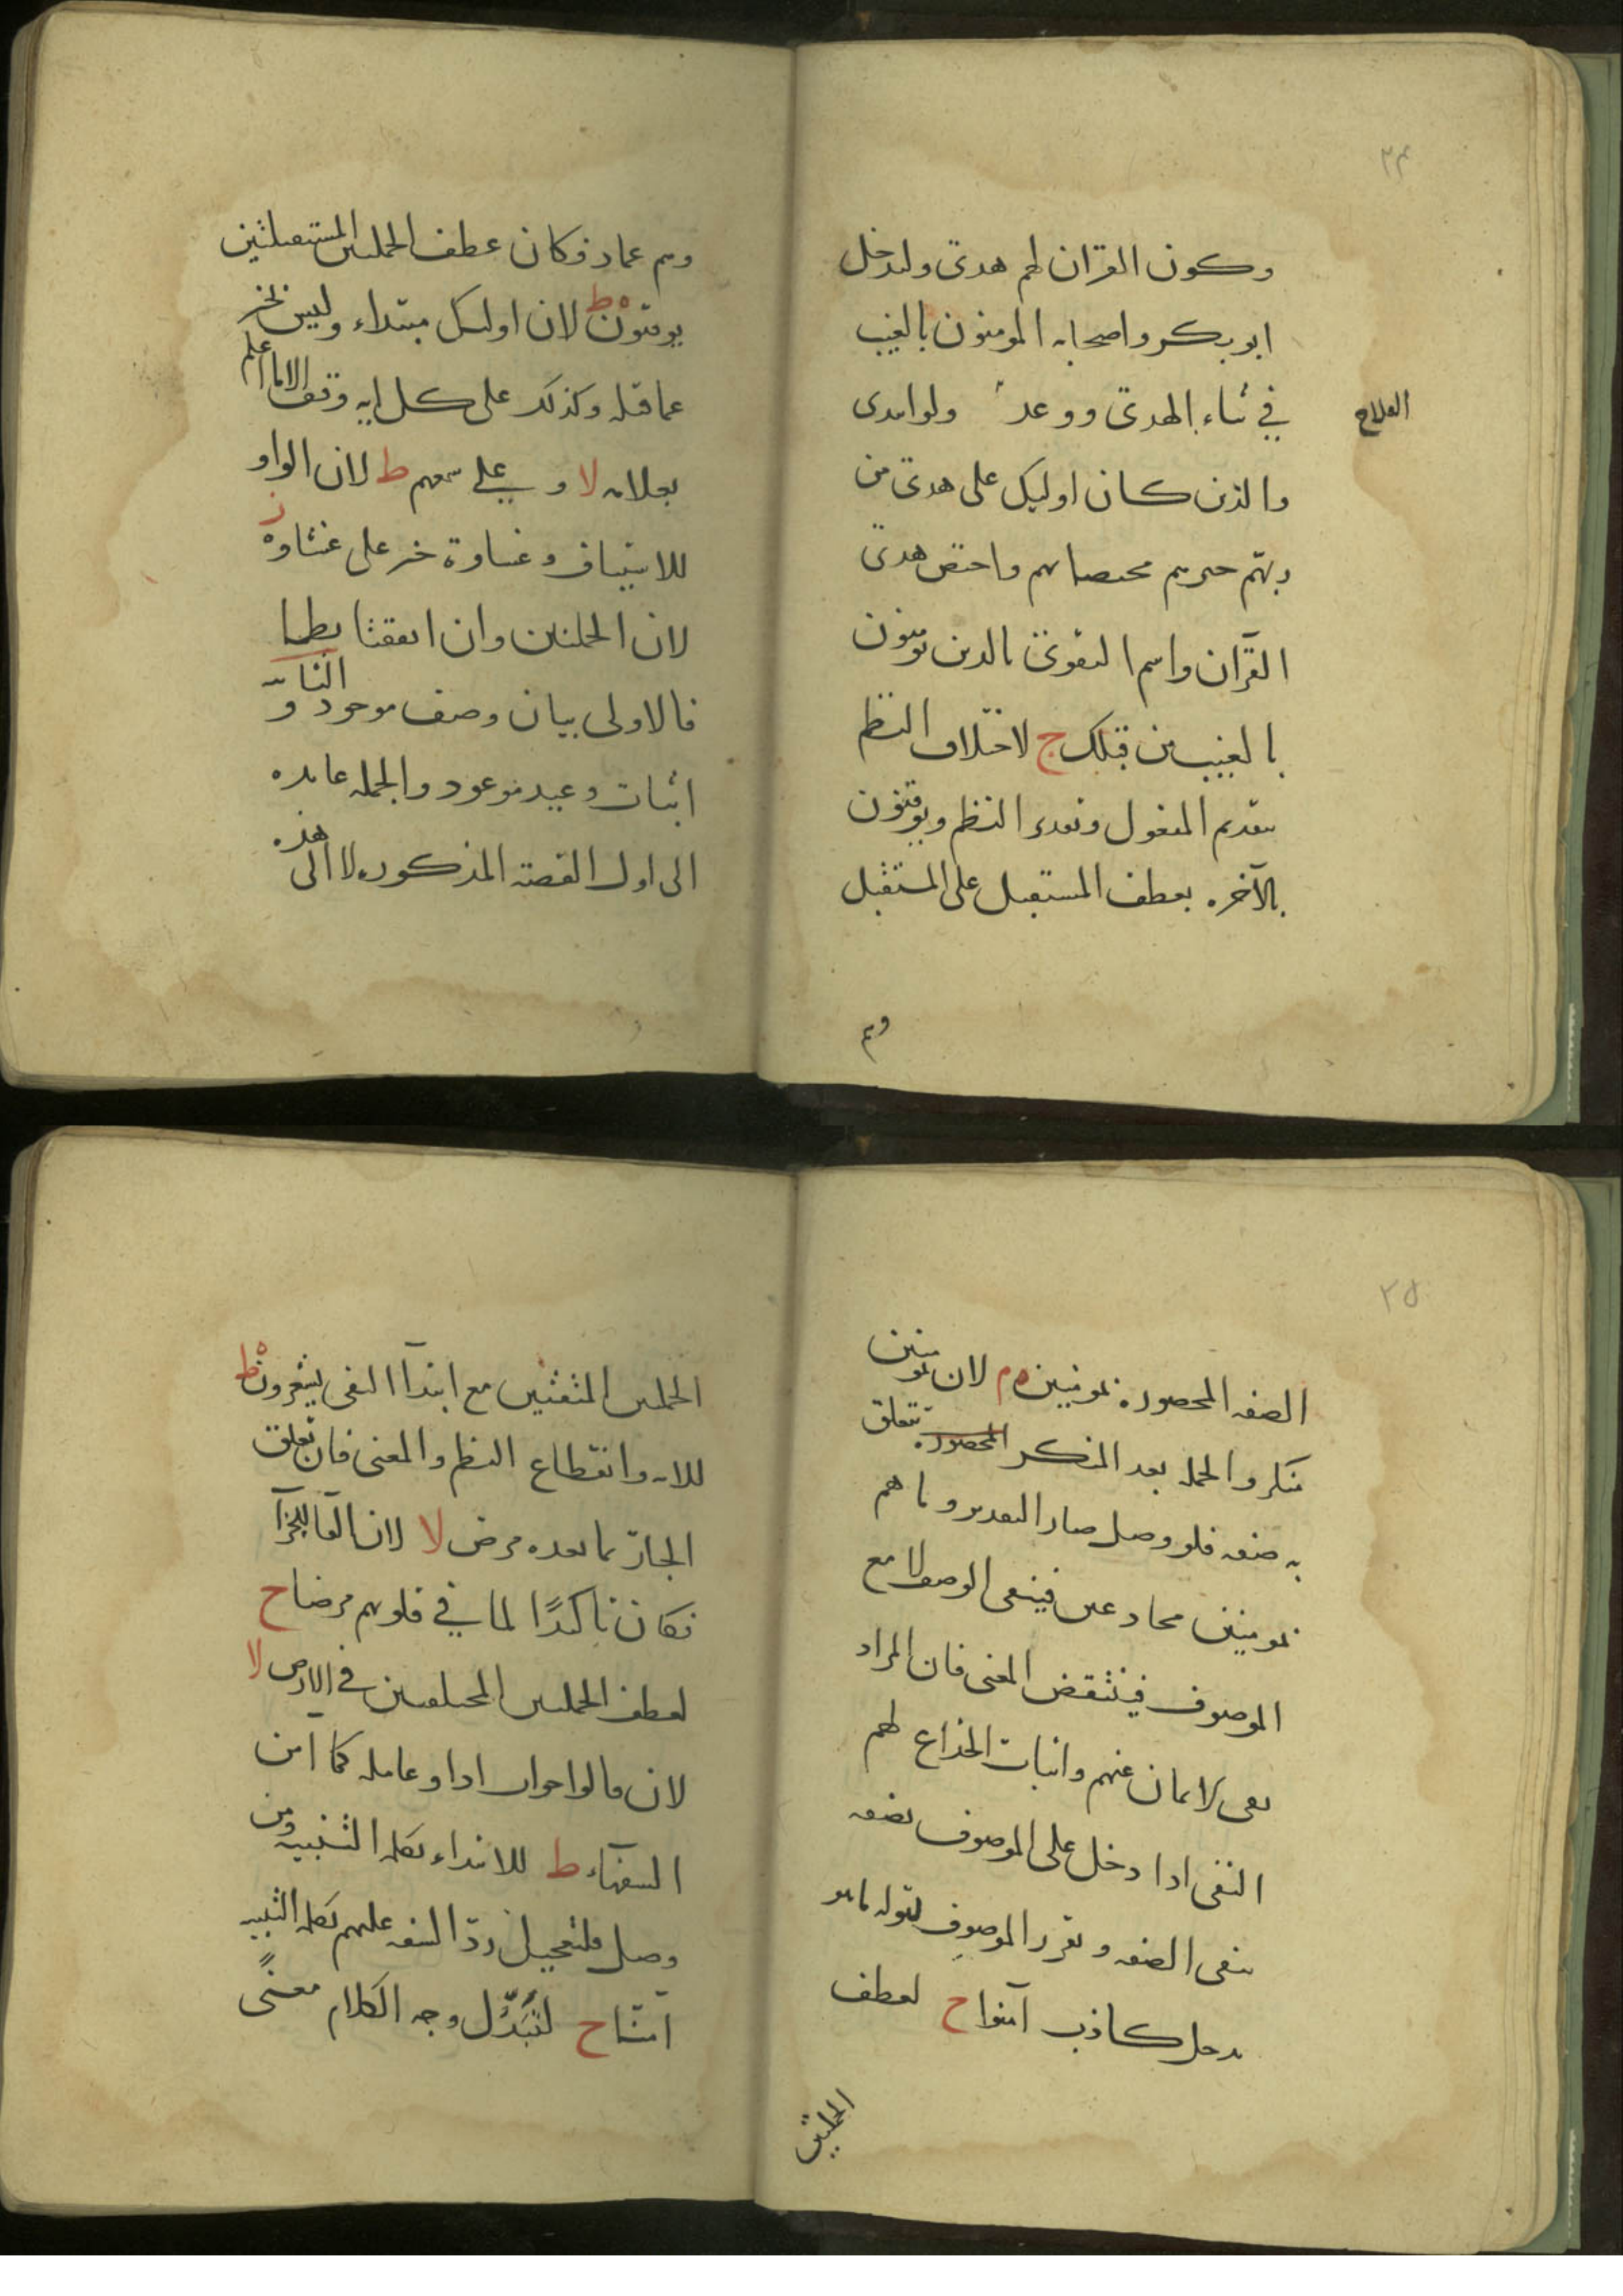 ٢٤
وكون القران لهم هدى وليدخل
ابو بكر واصحابه المومنون بالغيب
في ثناء الهدى ووعد ولو ابتدى
الفلاح
والذين كان اوليك على هدى من
ربهم خبرهم مختصا بهم واختص هدى
القرآن واسم التقوى بالذين يومنون
بالغيب من قبلك ج لاختلاف النظم
بتقديم المفعول ويوقنون
بالآخره بعطف المستقبل على المستقبل
وهم
وهم عماد فكان عطف الجملتين المستقبلتين
يوقنون ط لان اوليك مبتداء وليس بخبر
عما قبله وكذلك على كل ايه وقف الا ما اعلم
بعلامه لا وعلى سمعهم ط لان الواو
للاستيناف وغشاوة خبر على غشاوة ز
لان الجملتين وان اتفقتا نظما
فالاولى بيان وصف موجود والثانيه
اثبات وعيد موعود والجمله عايده
الى اول القصة المذكوره لا الى هذه
٢٥
الصفه المحصوره بمومنين م لان بمومنين
منكر والجمله بعد المنكر المحصوره تتعلق
به صفه فلو وصل صار التقدير وما هم
بمومنين مخادعين فينفى الوصف لا مع
الموصوف فينتقض المعنى فان المراد
نفى الايمان عنهم واثبات الخداع لهم
النفى اذا دخل على الموصوف بصفه
ينفى الصفه ويقرر الموصوف لقوله ما هو
برجل كاذب آمنوا ج لعطف
الجملتين
الجملتين المتفقتين مع ابتدآ النفى يشعرون ط
للايه وانقطاع النظم والمعنى فان تعلق
الجار بما بعده مرض لا لان الفآ للجزآ
فكان تاكيدًا لما في قلوبهم مرضا ج
لعطف الجملتين المختلفتين في الارض لا
لان قالوا جواب اذا وعامله كما امن
السفهآء ط للابتداء بكلمه التنبيه ومن
وصل فلتعجيل ردّ السفه عليهم بكلمه التنبيه
آمنّا ج لتبدّل وجه الكلام معنًى